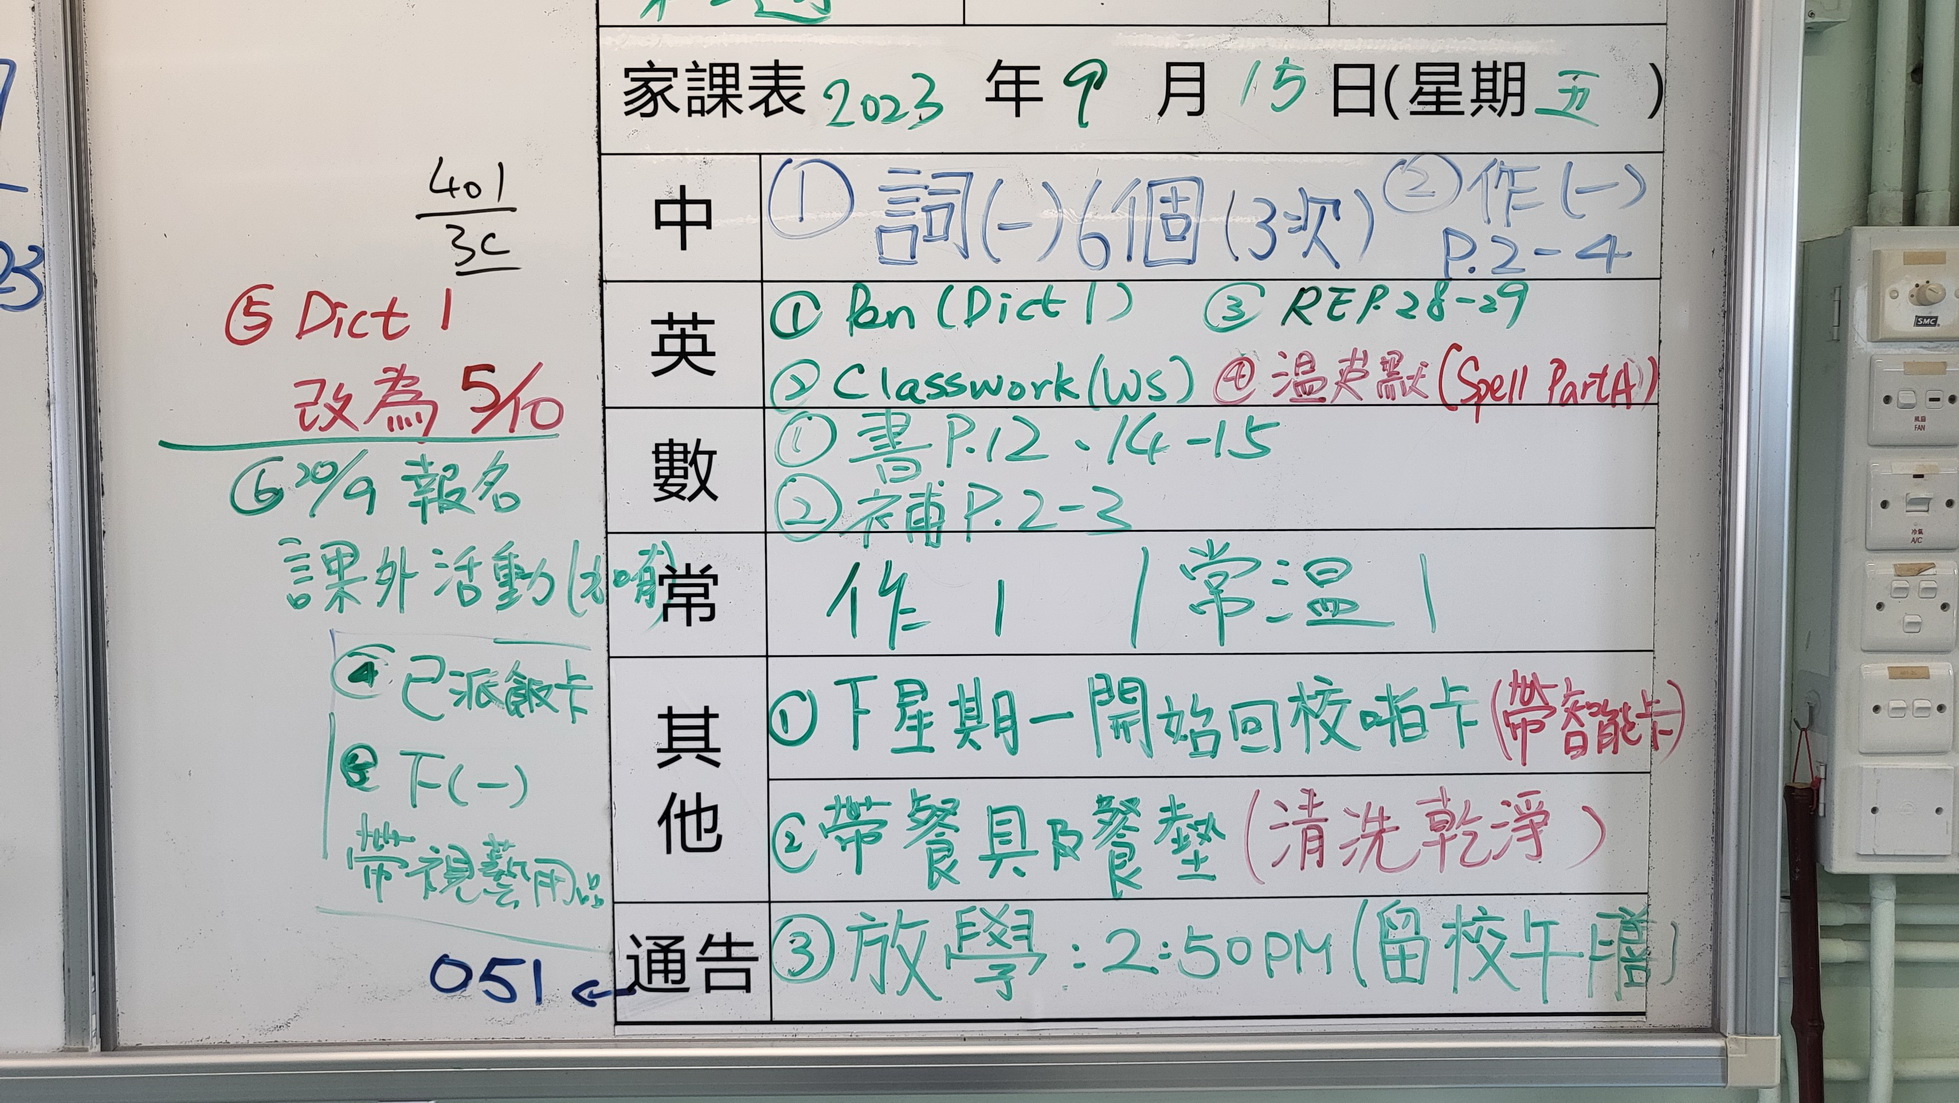 家課表 2023 年 9 月 15 日(星期 五 )
中
① 詞(一)6個(3次) ② 作(一)
P.2-4
英
① Pen (Dict 1) ③ RE P.28-29
② Classwork (WS) ④ 温英默(Spell Part A)
數
① 書 P.12、14-15
② 補 P.2-3
常
作 1 | 常温 1
其他
① 下星期一開始回校啪卡(帶智能卡)
② 帶餐具及餐墊(清洗乾淨)
通告
③ 放學：2:50PM (留校午膳)
401
3C
⑤ Dict 1
改為 5/10
⑥ 20/9 報名
課外活動(如有)
④ 已派飯卡
⑤ 下(一)
帶視藝用品
051 ←
SMC
FAN
A/C